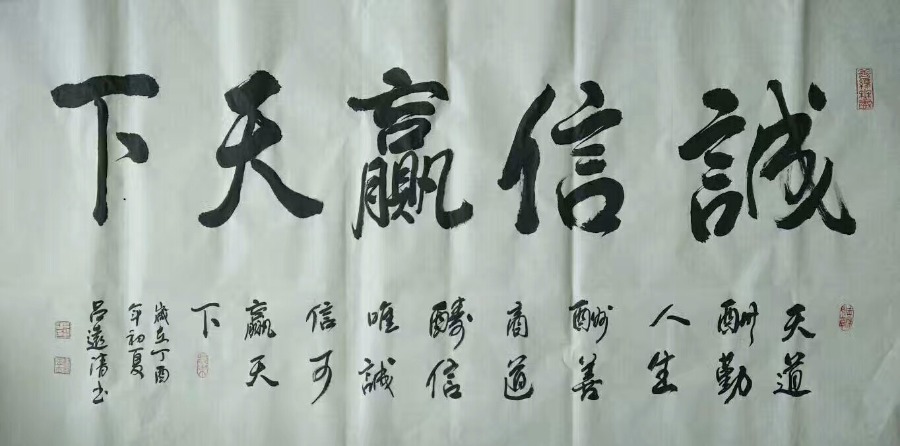 誠信贏天下
天道
酬勤
人生
酬善
商道
酬信
唯誠
信可
贏天
下
歲在丁酉
年初夏